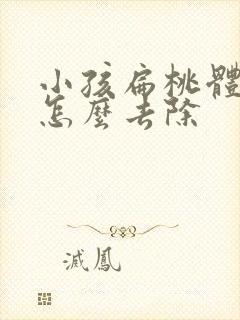 小孩扁桃體
怎麼去除
滅鳳